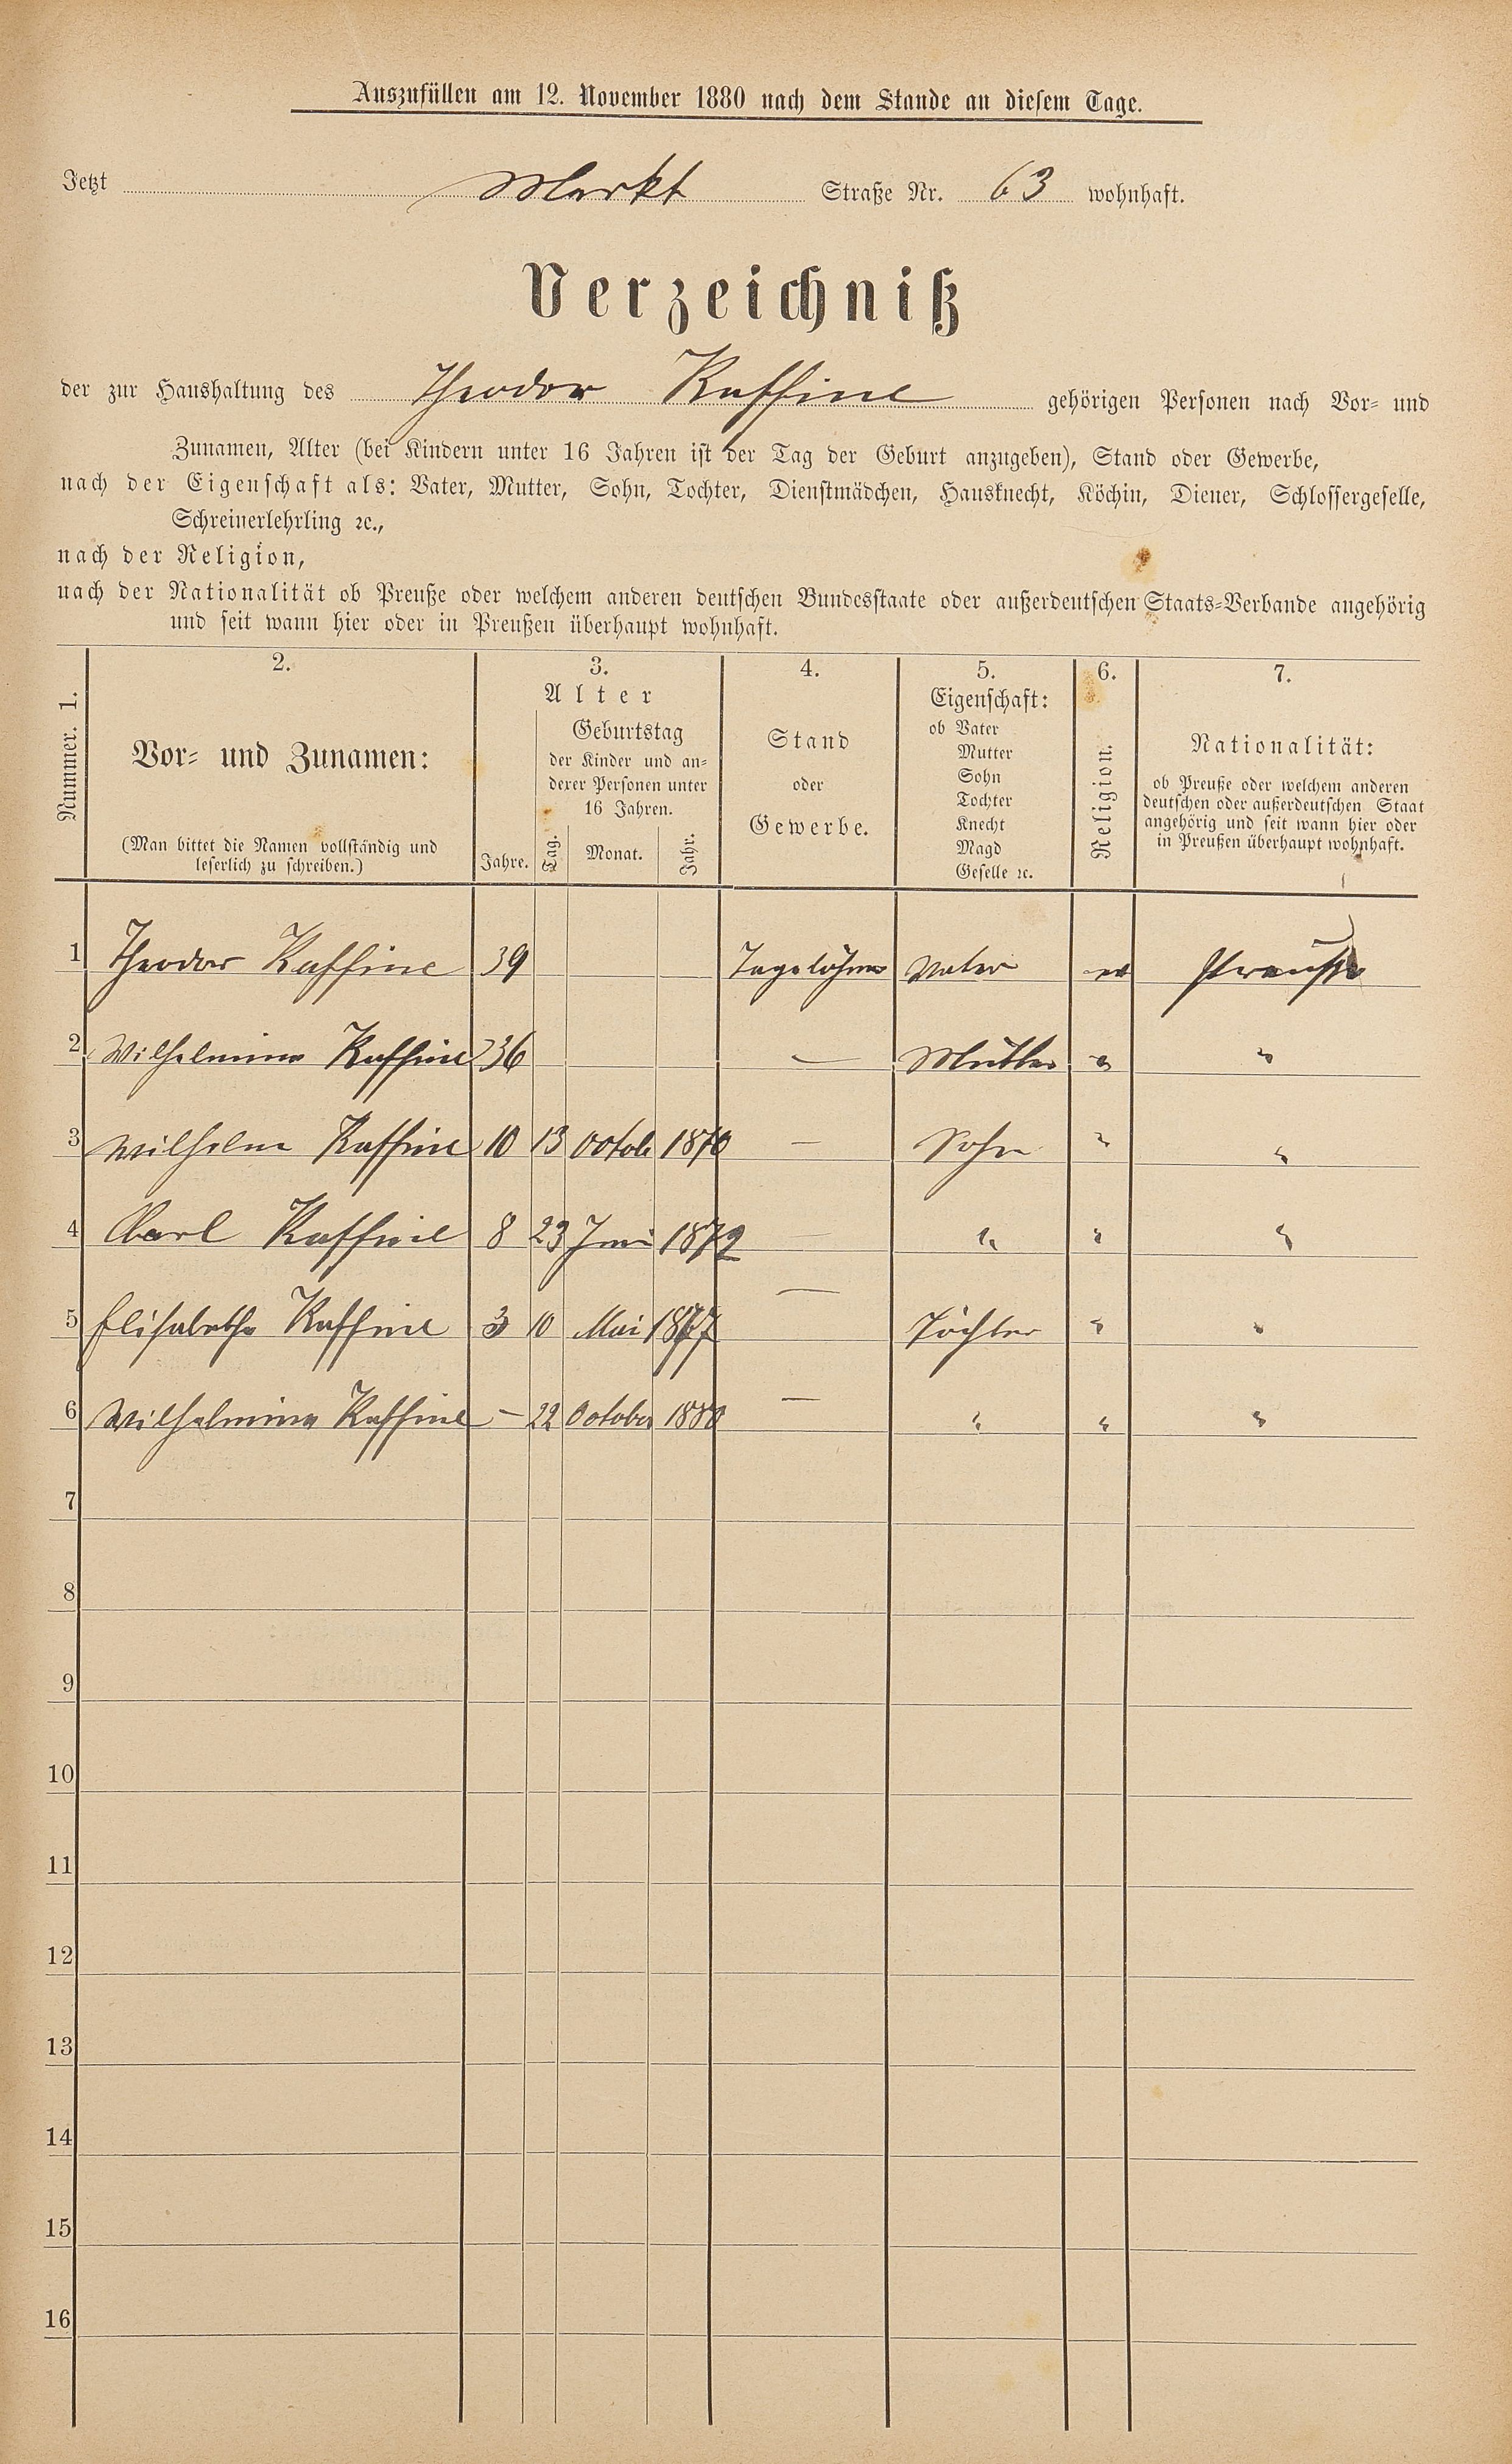 Auszufüllen am 12. November 1880 nach dem Stande an diesem Tage.
Jetzt Markt Straße Nr. 63 wohnhaft.
Verzeichniß
der zur Haushaltung des Theodor Raffine gehörigen Personen nach Vor- und
Zunamen, Alter (bei Kindern unter 16 Jahren ist der Tag der Geburt anzugeben), Stand oder Gewerbe,
nach der Eigenschaft als: Vater, Mutter, Sohn, Tochter, Dienstmädchen, Hausknecht, Köchin, Diener, Schlossergeselle,
Schreinerlehrling ꝛc.,
nach der Religion,
nach der Nationalität ob Preuße oder welchem anderen deutschen Bundesstaate oder außerdeutschen Staats-Verbande angehörig
und seit wann hier oder in Preußen überhaupt wohnhaft.
Nummer. 1.
2.
Vor- und Zunamen:
(Man bittet die Namen vollständig und
leserlich zu schreiben.)
3.
Alter
Jahre.
Geburtstag
der Kinder und an-
derer Personen unter
16 Jahren.
Tag. Monat. Jahr.
4.
Stand
oder
Gewerbe.
5.
Eigenschaft:
ob Vater
Mutter
Sohn
Tochter
Knecht
Magd
Geselle ꝛc.
6.
Religion.
7.
Nationalität:
ob Preuße oder welchem anderen
deutschen oder außerdeutschen Staat
angehörig und seit wann hier oder
in Preußen überhaupt wohnhaft.
1 Theodor Raffine 39 Tagelöhner Vater ev Preuße
2 Wilhelmine Raffine 36 — Mutter " "
3 Wilhelm Raffine 10 13 Octob 1870 — Sohn " "
4 Carl Raffine 8 23 Juni 1872 — " " "
5 Elisabethe Raffine 3 10 Mai 1877 — Töchter " "
6 Wilhelmina Raffine — 22 October 1880 — " " "
7
8
9
10
11
12
13
14
15
16